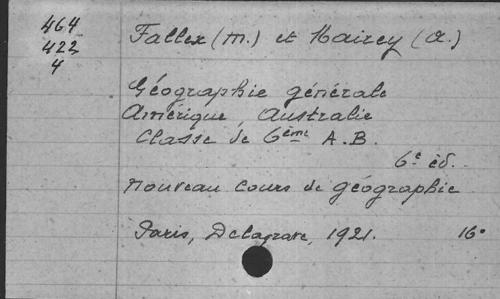 464
422
4
Fallex (M.) et Mairey (A.)
Géographie générale
Amérique, Australie
Classe de 6ème A.B.
6e éd.
Nouveau cours de géographie
Paris, Delagrave, 1921. 16°